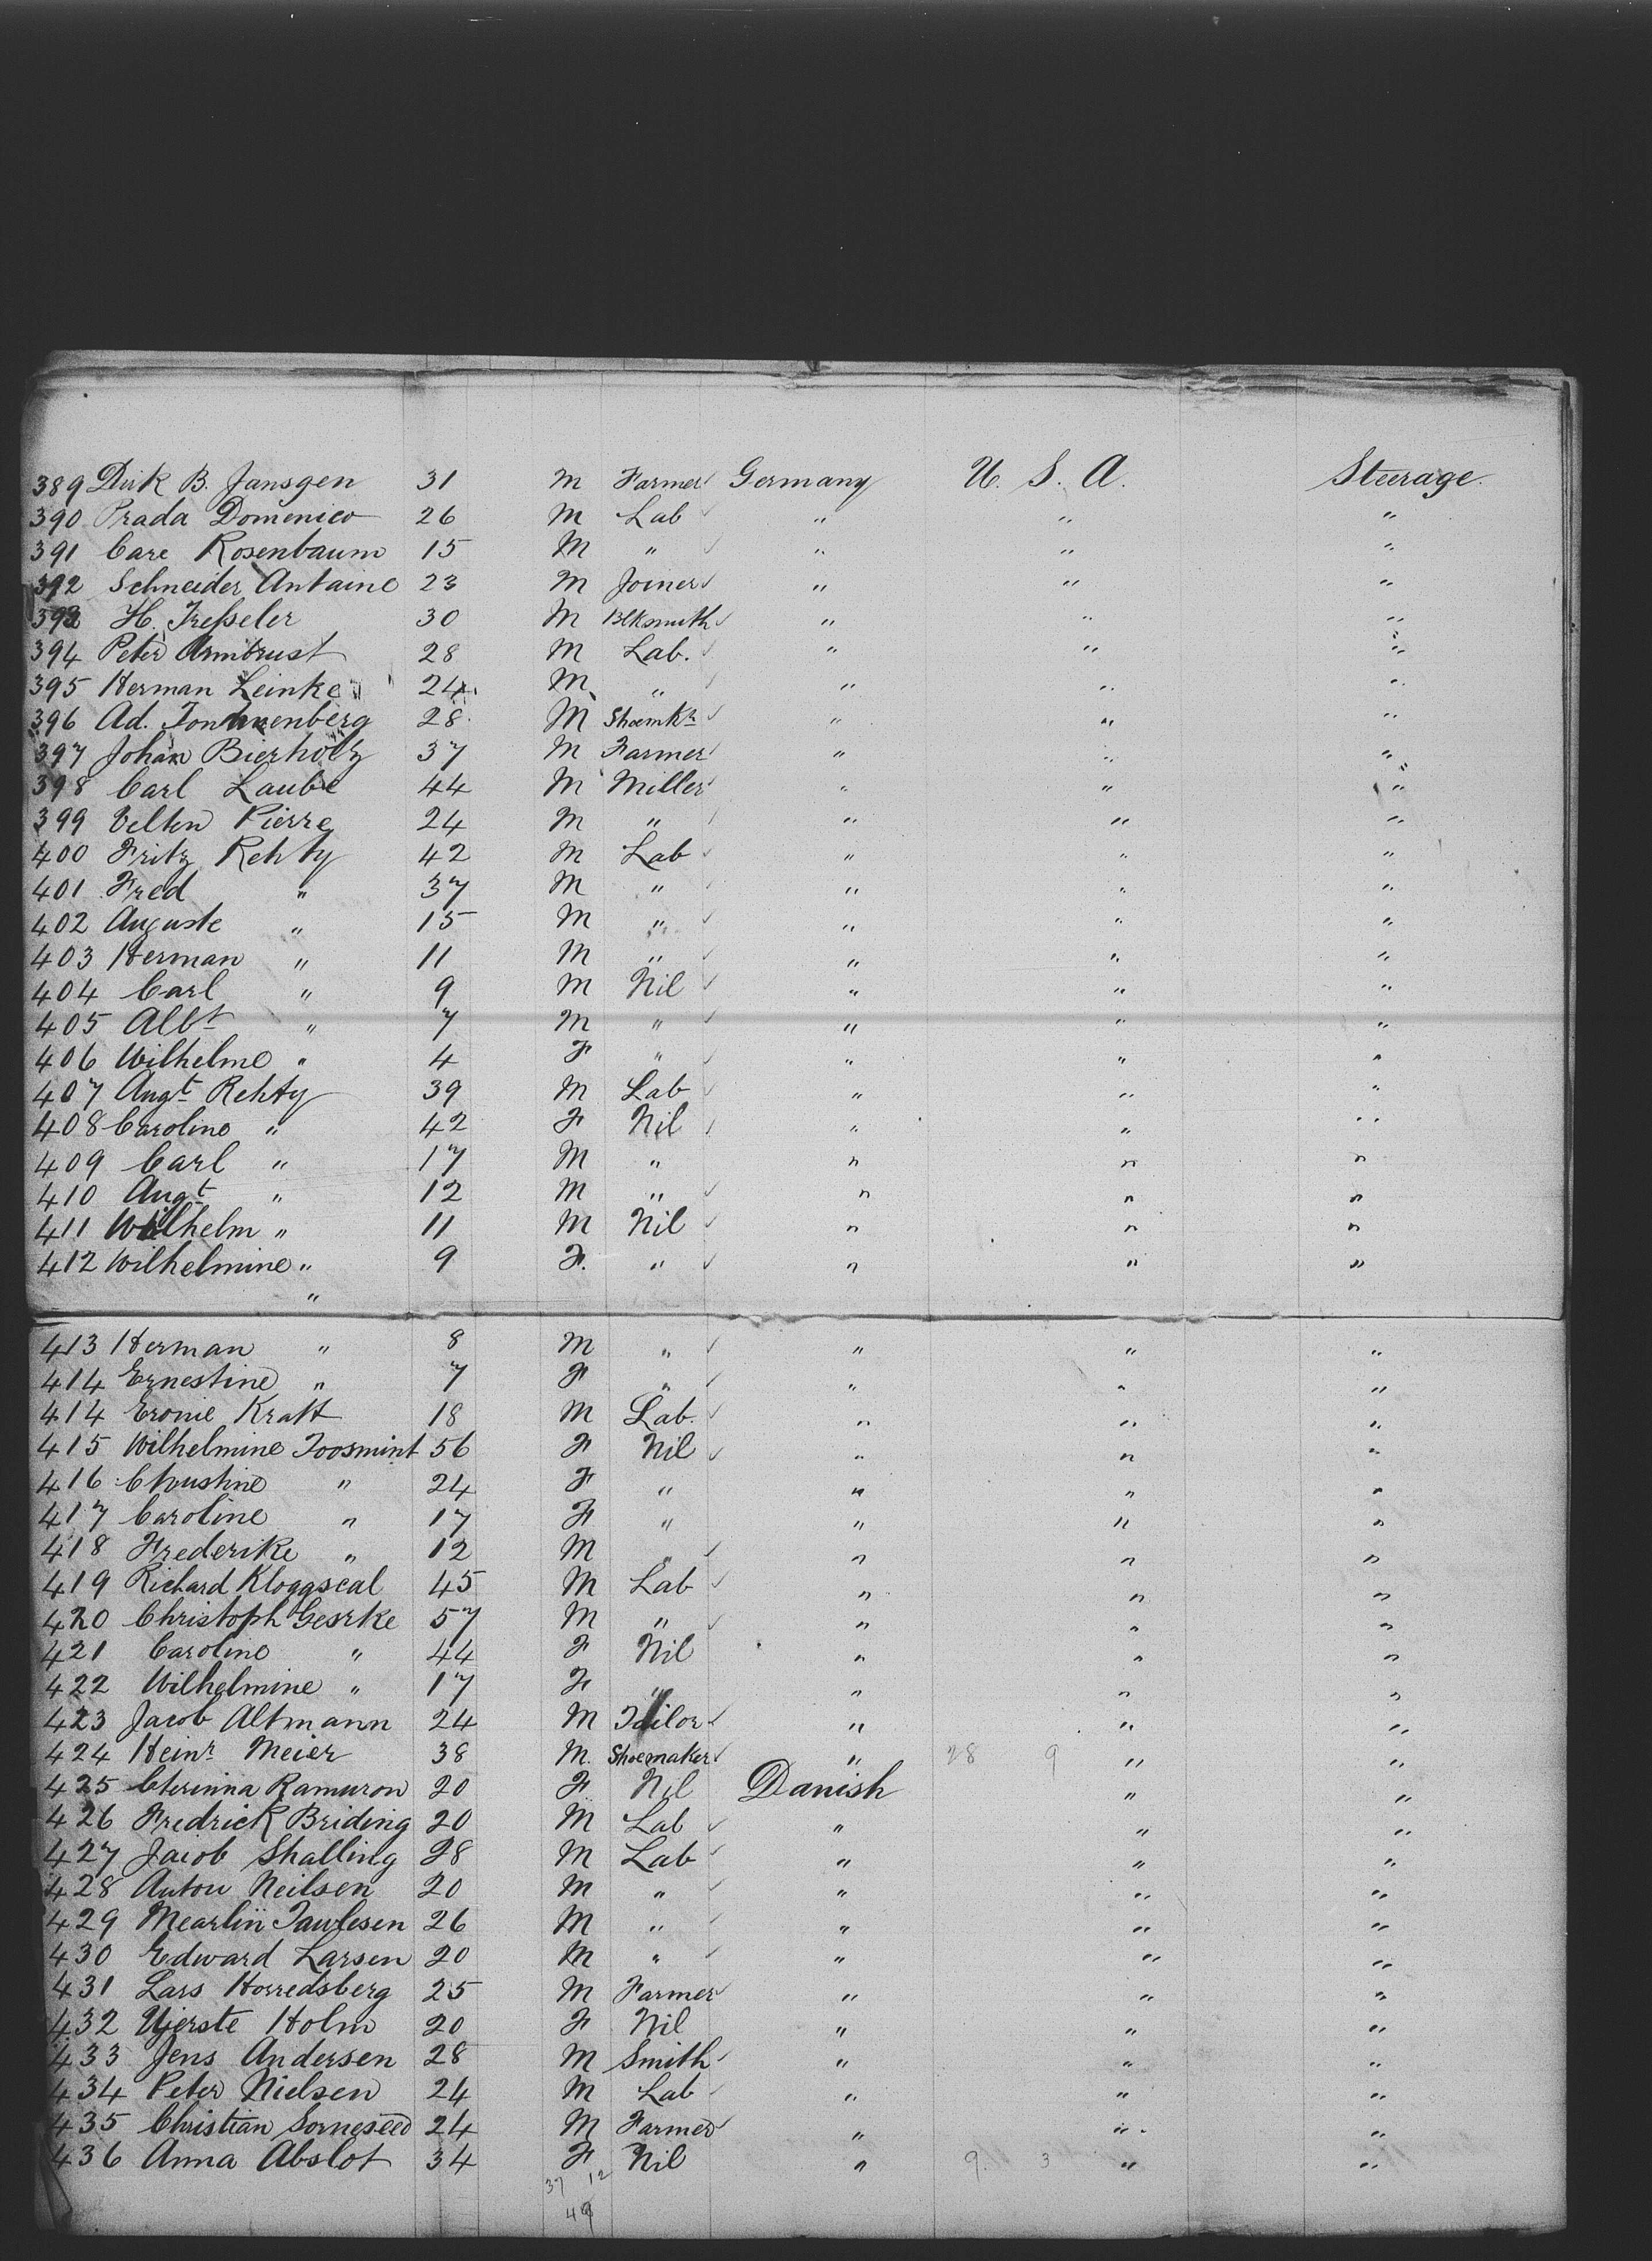 389 Dirk B. Jansgen 31 M Farmer Germany U. S. A. Steerage
390 Prada Domenico 26 M Lab " " "
391 Care Rosenbaum 15 M " " " "
392 Schneider Antaine 23 M Joiner " " "
393 H. Tressler 30 M Blksmith " " "
394 Peter Armbrust 28 M Lab. " " "
395 Herman Leinke 24 M " " " "
396 Ad. 28 M Shoemkr " " "
397 Johan Bierholz 37 M Farmer " " "
398 Carl Laube 44 M Miller " " "
399 Velten Pierre 24 M " " " "
400 Fritz Rehty 42 M Lab " " "
401 Fred " 37 M " " " "
402 Auguste " 15 M " " " "
403 Herman " 11 M " " " "
404 Carl " 9 M Nil " " "
405 Albt " 7 M " " " "
406 Wilhelme " 4 F " " " "
407 Augt Rehty 39 M Lab " " "
408 Caroline " 42 F Nil " " "
409 Carl " 17 M " " " "
410 Augt " 12 M " " " "
411 Wilhelm " 11 M Nil " " "
412 Wilhelmine " 9 F. " " " "
"
413 Herman " 8 M " " " "
414 Ernestine " 7 F " " " "
414 Kraft 18 M Lab. " " "
415 Wilhelmine Toosmint 56 F Nil " " "
416 Christine " 24 F " " " "
417 Caroline " 17 F " " " "
418 Frederike " 12 M " " " "
419 Richard Kloggseal 45 M Lab " " "
420 Christoph Gesrke 57 M " " " "
421 Caroline " 44 F Nil " " "
422 Wilhelmine " 17 F " " " "
423 Jacob Altmann 24 M Tailor " " "
424 Heinr Meier 38 M. Shoemaker " 28 9 " "
425 Ramuron 20 F Nil Danish " "
426 Fredrick Briding 20 M Lab " " "
427 Jacob Shalling 28 M Lab " " "
428 Anton Neilsen 20 M " " " "
429 26 M " " " "
430 Edward Larsen 20 M " " " "
431 Lars Horredsberg 25 M Farmer " " "
432 Holm 20 F Nil " " "
433 Jens Andersen 28 M Smith " " "
434 Peter Nielsen 24 M Lab " " "
435 Christian 24 M Farmer " " "
436 Anna Abslot 34 F Nil " 9. 3 " "
37 12
49